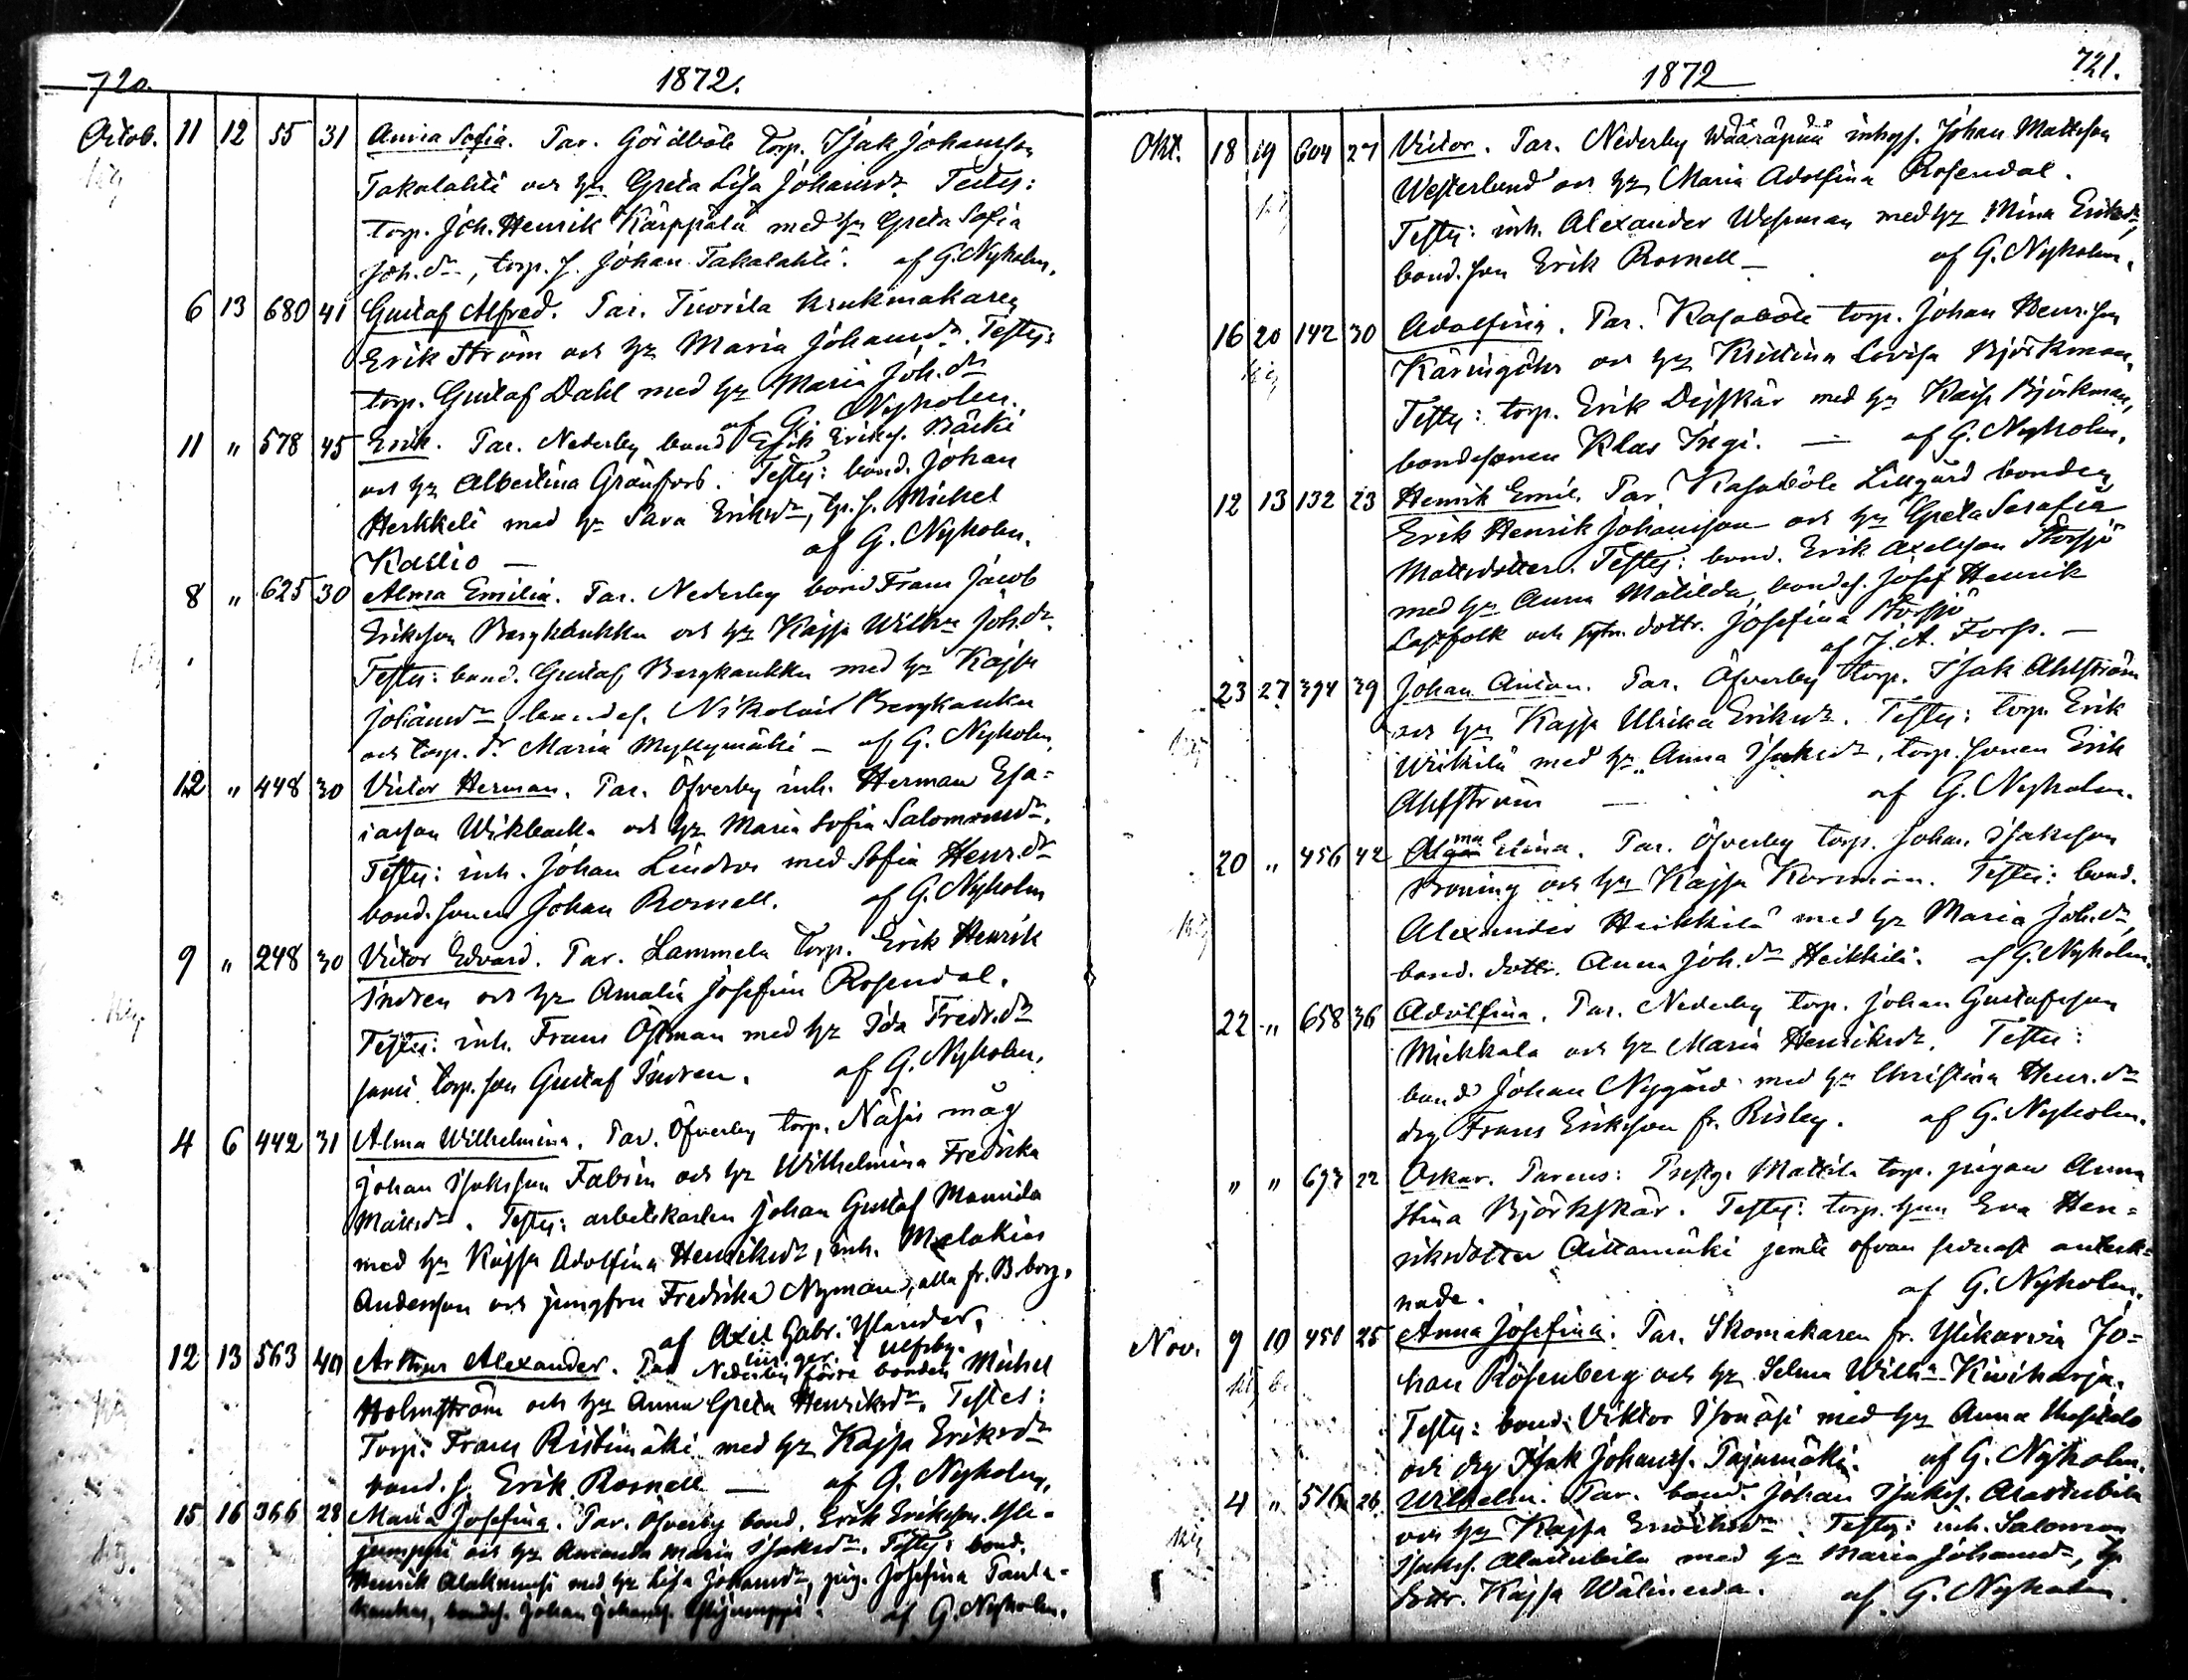 720. 1872.
Octob. 11 12 55 31 Anna Sofia. Par. Gördböle torp. Isak Johansson
Takalahti och hu Greta Lisa Johansdr Testes:
torp. Joh. Henrik Karppala med hu Greta Sofia
Joh.dr, torp. s. Johan Takalahti. af G. Nyholm.
6 13 680 41 Gustaf Alfred. Par. Tuorila krukmakaren
Erik Ström och hu Maria Johansdr. Testes:
torp. Gustaf Dahl med hu Maria Joh.dr
af G. Nyholm.
11 " 578 45 Erik. Par. Nederby bond Erik Eriks. Bäcki
och hu Albertina Grönfors. Testes: bond. Johan
Herkkeli med hu Sara Eriksdr, s. Michel
Kallio — af G. Nyholm.
8 " 625 30 Alma Emilia. Par. Nederby bond Frans Jacob
Eriksson Bergkaukka och hu Kajsa Wilh:na Joh.dr.
Testes: bond. Gustaf Bergkaukka med hu Kajsa
Johansdr, bondes. Nikolai Bergkaukka
och torp. dr Maria Myllymäki — af G. Nyholm.
12 " 448 30 Victor Herman. Par. Öfverby inh. Herman Esa-
iasson Wikbacka och hu Maria Sofia Salomonsdr.
Testes: inh. Johan Lindros med Sofia Henr.dr
bond. sonen Johan Rosnell. af G. Nyholm
9 " 248 30 Victor Edvard. Par. Lammela torp. Erik Henrik
Indren och hu Amalia Josefina Rosendal.
Testes: inh. Frans Östman med hu Ida Fredr.dr
samt torp. son Gustaf Indren. af G. Nyholm.
4 6 442 31 Alma Wilhelmina. Par. Öfverby torp. Näsis måg
Johan Isaksson Fabrin och hu Wilhelmina Fredrika
Matsdr. Testes: arbetskarlen Johan Gustaf Mannila
med hu Kajsa Adolfina Henriksdr, inh. Malakias
Andersson och jungfru Fredrika Nyman, alla fr. B.borg.
af Axel Gabr. Ulfsby.
12 13 563 40 Arthur Alexander. Par Nederby förra bonden Michel
Holmström och hu Anna Greta Henriksdr. Testes:
Torp. Frans Ristimäki med hu Kajsa Eriksdr
bond. s. Erik Rosnell — af G. Nyholm.
15 16 366 28 Maria Josefina. Par. Öfverby bond. Erik Eriksson Yli-
jumppi och hu Amanda Maria Isaksdr. Testes: bond.
Henrik med hu Lisa Johansdr, pig. Josefina
bondes. Johan Johanss. Ylijumppi. af G. Nyholm.
1872 721.
Okt. 18 19 604 27 Victor. Par. Nederby Wääräpää inhys. Johan Mattsson
Westerlund och hu Maria Adolfina Rosendal.
Testes: inh. Alexander Wesman med hu Mina Eriksdr,
bond. son Erik Rosnell — af G. Nyholm.
16 20 142 30 Adolfina. Par. Kasaböle torp. Johan Henr.son
Käringöhr och hu Kristina Lovisa Björkman,
Testes: torp. Erik Dejskär med hu Kajsa Björkman,
bondesonen Klas Ingi. — af G. Nyholm.
12 13 132 23 Henrik Emil. Par Kasaböle Lillgård bonden
Erik Henrik Johansson och hu Greta Serafia
Mattsdotter. Testes: bond. Erik Axelsson Storsjö
med hu Anna Matilda, bondes. Josef Henrik
Lassfolk och dottr. Josefina Storsjö
af J. A. Forss. —
23 27 394 39 Johan Anton. Par. Öfverby torp. Isak Ahlström
och hu Kajsa Ulrika Eriksdr. Testes: torp. Erik
Wiikilä med hu Anna Isaksdr, torp. sonen Erik
Ahlström — af G. Nyholm.
20 " 456 42 Alma Elina. Par. Öfverby torp. Johan Isaksson
Kroning och hu Kajsa Korsman. Testes: bond.
Alexander Heikkilä med hu Maria Joh.dr,
bond. dottr. Anna Joh.dr Heikkilä. af G. Nyholm.
22 " 658 36 Adolfina. Par. Nederby torp. Johan Gustafsson
Mickkala och hu Maria Henriksdr. Testes:
bond Johan Nygård med hu Christina Henr.dr
drg Frans Eriksson fr. Risby. af G. Nyholm.
" " 693 22 Oskar. Parens: Prestg. Mattila torp. pigan Anna
Stina Björkskär. Testes: torp. hun Eva Hen-
riksdotter Aittamäki jemte ofvan senast anteck-
nade. af G. Nyholm.
Nov. 9 10 451 25 Anna Josefina. Par. Skomakaren fr. Ylikarvia Jo-
han Rosenberg och hu Selma Wilh:na Kiviharja.
Testes: bond. Viktor Isonäsi med hu Anna
och drg Isak Johanss. Pajumäki. af G. Nyholm.
4 " 516 26 Wilhelm. Par. bond. Johan Isaks. Alastubila
och hu Kajsa Testes: inh. Salomon
Isaks. Alastubila med hu Maria Johansdr,
dottr. Kajsa af G. Nyholm.